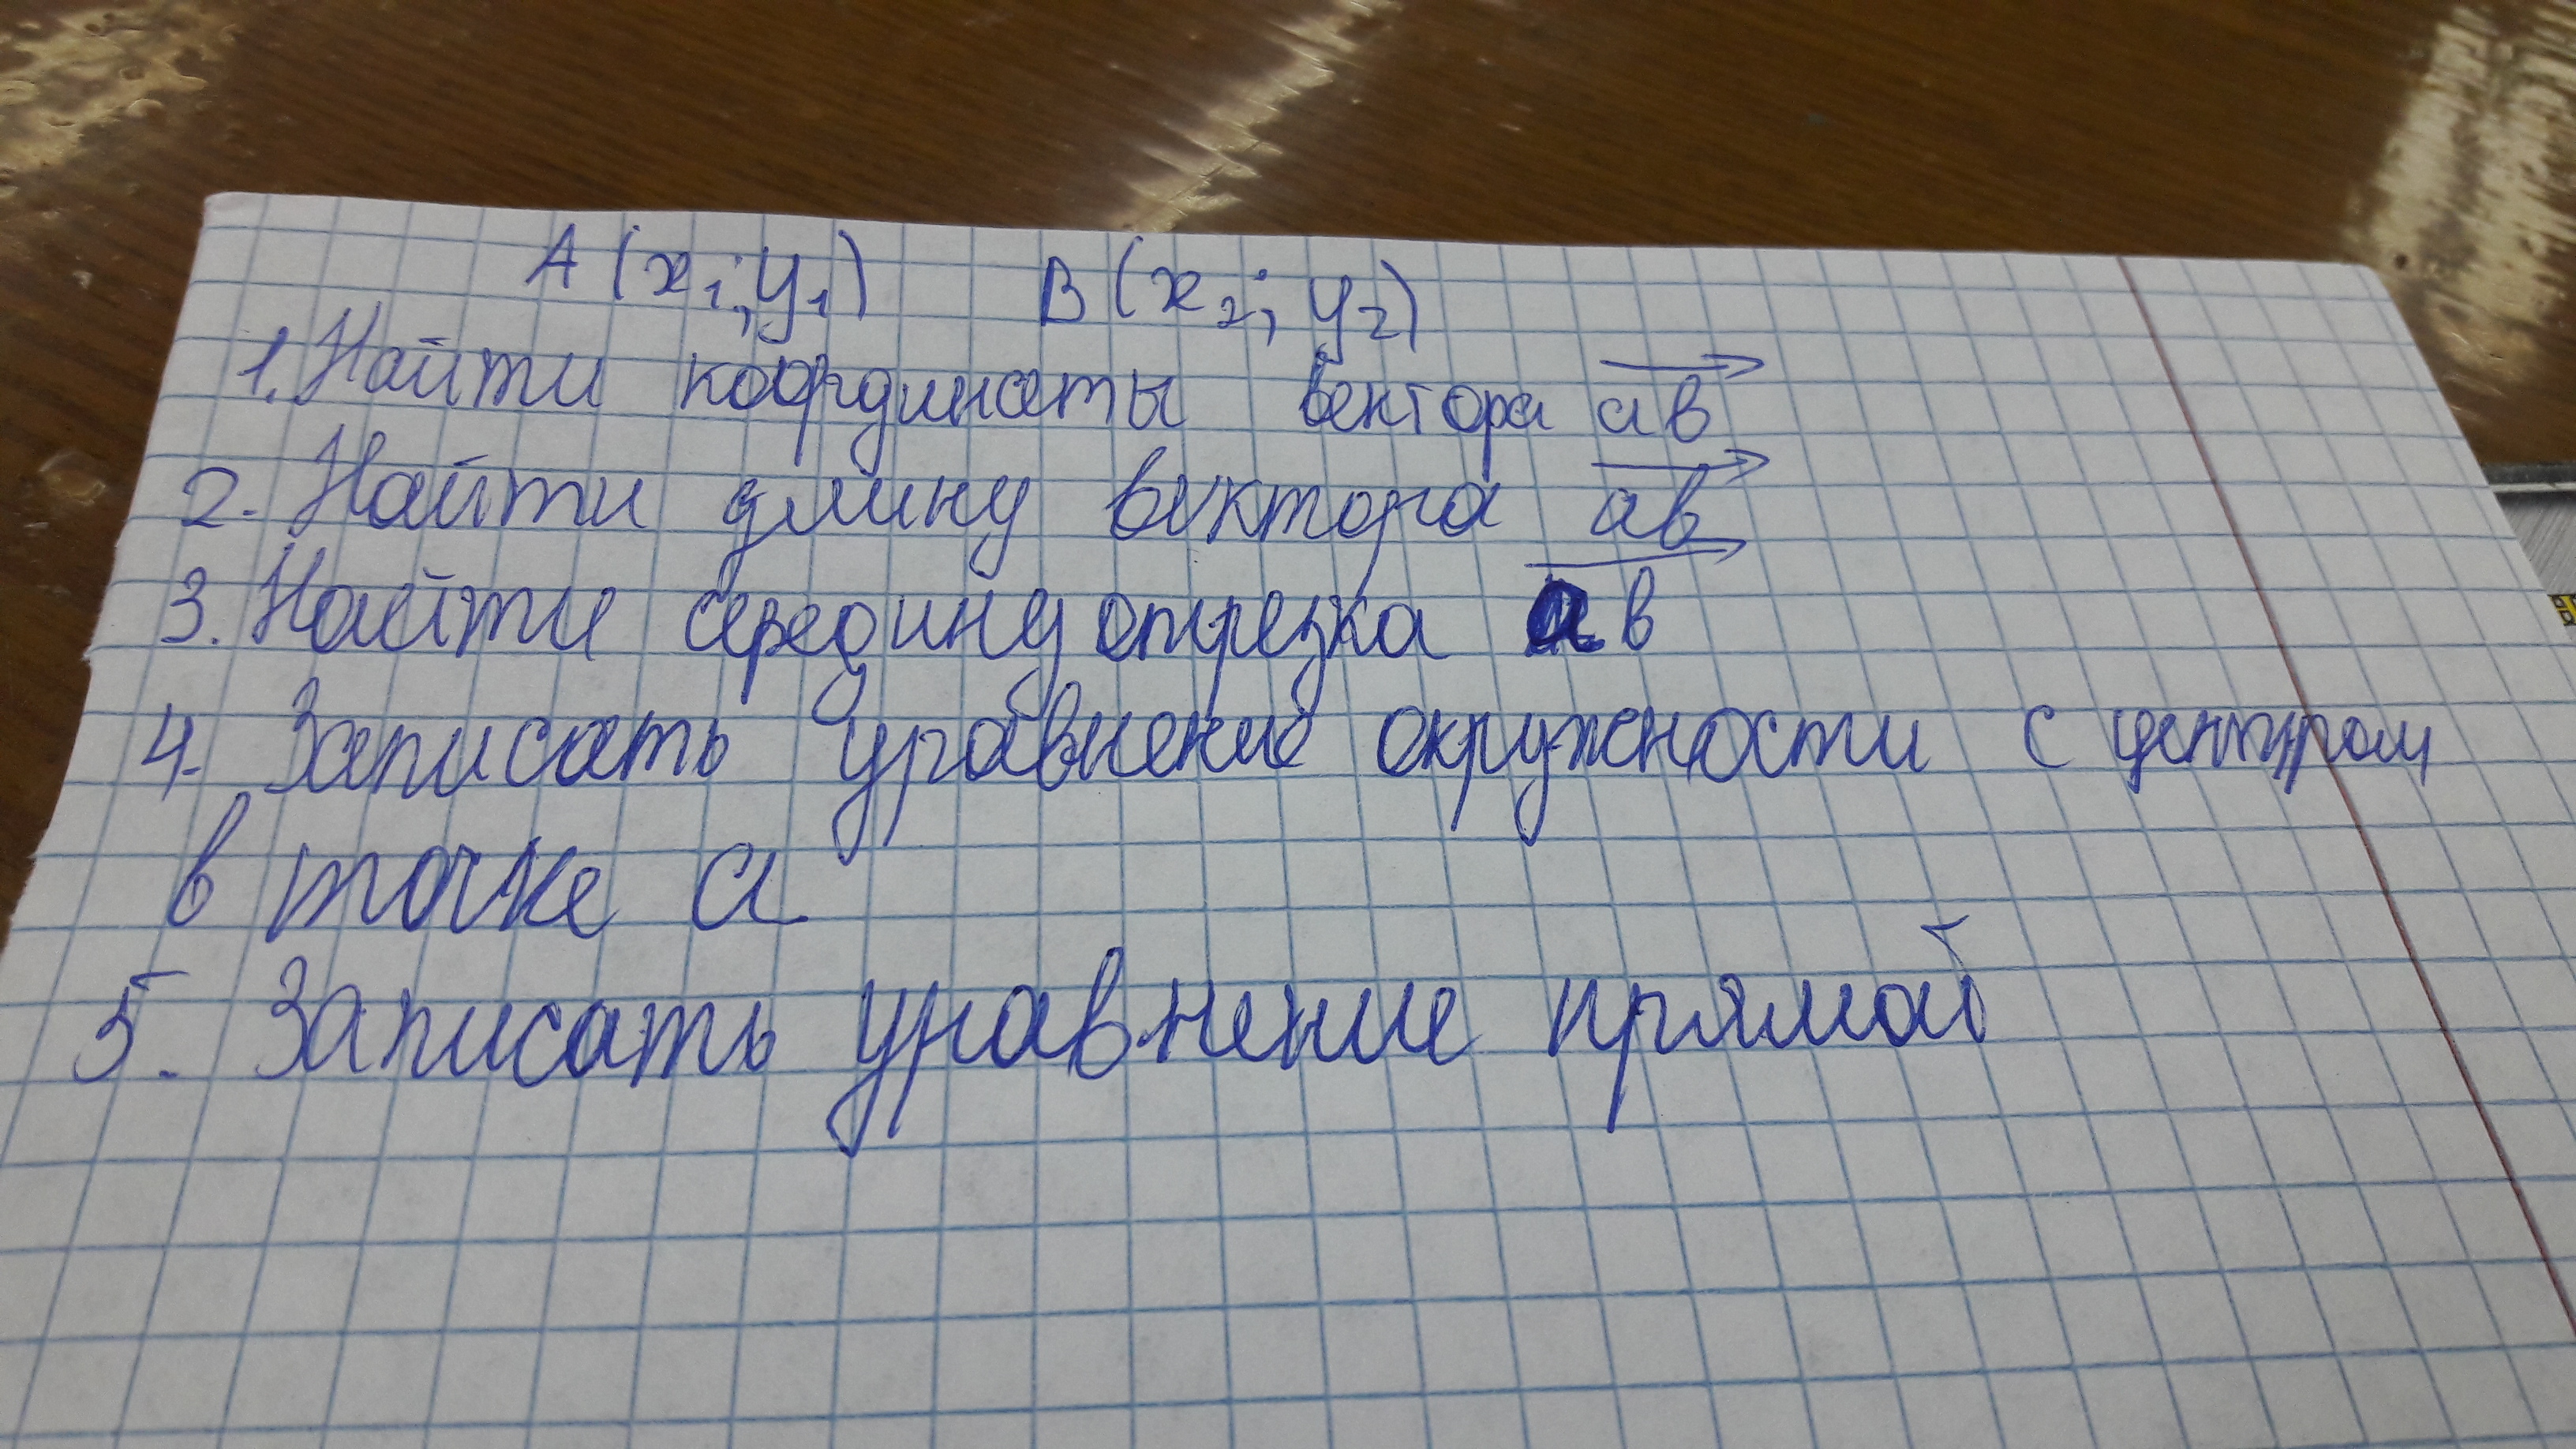 A (x₁; y₁) B (x₂; y₂)
1. Найти координаты вектора ав
2. Найти длину вектора ав
3. Найти середину отрезка ав
4. Записать уравнение окружности с центром
в точке а
5. Записать уравнение прямой